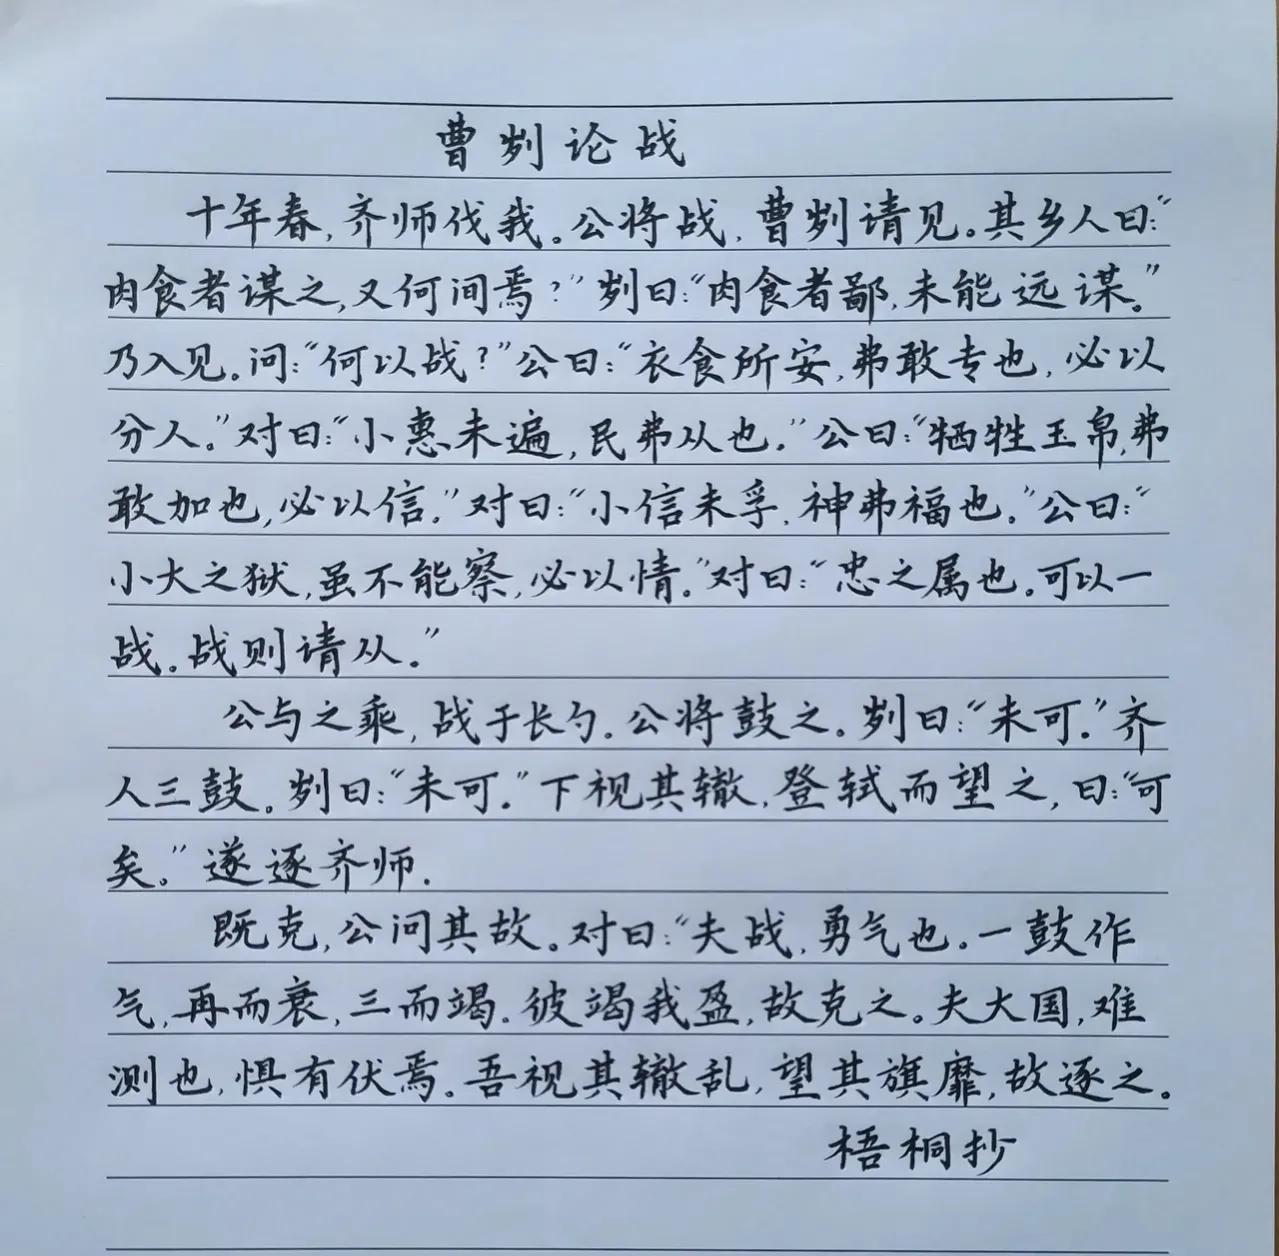 曹刿论战
十年春,齐师伐我。公将战,曹刿请见。其乡人曰:“
肉食者谋之,又何间焉?”刿曰:“肉食者鄙,未能远谋。”
乃入见。问:“何以战?”公曰:“衣食所安,弗敢专也,必以
分人。”对曰:“小惠未遍,民弗从也.”公曰:“牺牲玉帛,弗
敢加也,必以信.”对曰:“小信未孚,神弗福也.”公曰:“
小大之狱,虽不能察,必以情.”对曰:“忠之属也.可以一
战.战则请从.”
公与之乘,战于长勺.公将鼓之.刿曰:“未可.”齐
人三鼓.刿曰:“未可.”下视其辙,登轼而望之,曰:“可
矣.”遂逐齐师.
既克,公问其故.对曰:“夫战,勇气也.一鼓作
气,再而衰,三而竭.彼竭我盈,故克之.夫大国,难
测也,惧有伏焉.吾视其辙乱,望其旗靡,故逐之.
梧桐抄